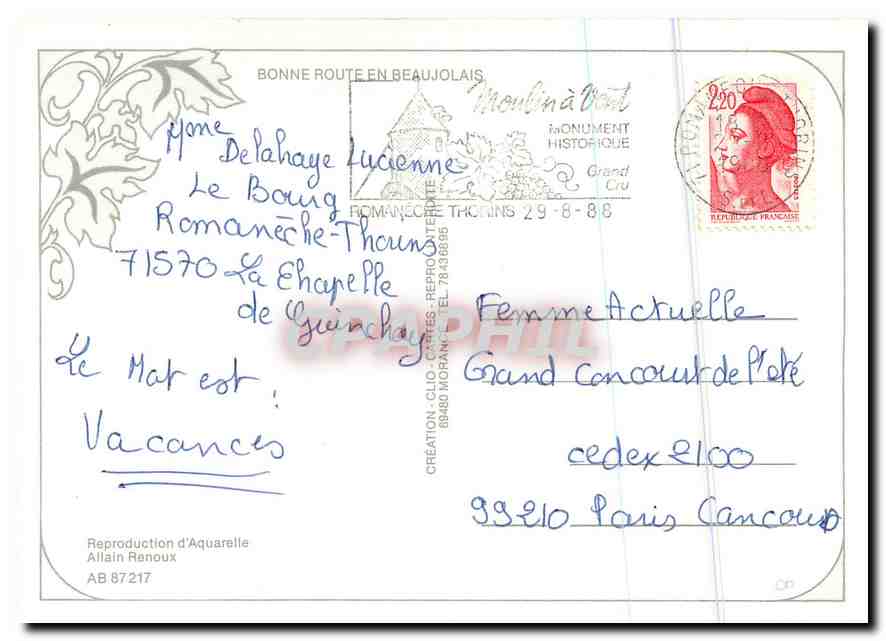 BONNE ROUTE EN BEAUJOLAIS
Moulin à Vent
MONUMENT
HISTORIQUE
Grand
Cru
ROMANÈCHE THORINS 29-8-88
2,20
RÉPUBLIQUE FRANÇAISE
Mme
Delahaye Lucienne
Le Bourg
Romanèche-Thorins
71570 La Chapelle
de Guinchay
Le Mot est :
Vacances
CRÉATION - CLIO - CARTES - REPROD. INTERDITE
69480 MORANCÉ - TEL. 78436895
CPAPHIL
Femme Actuelle
Grand Concourt de l'été
cedex 2100
99210 Paris Concours
Reproduction d'Aquarelle
Allain Renoux
AB 87217